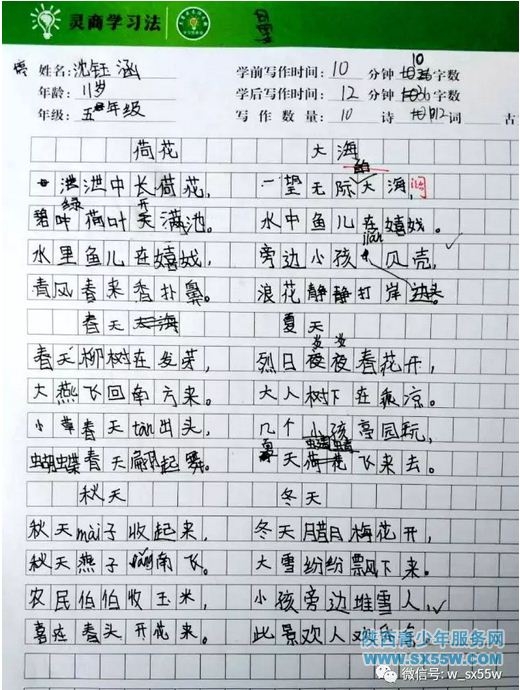 灵商学习法
姓名:沈钰涵
学前写作时间:10 分钟 字数
年龄:11岁
学后写作时间:12 分钟 字数
年级:五年级
写作数量:10 诗 词 古
荷花
大海
池中长荷花,
一望无际大海,
绿叶荷叶开满池。
水中鱼儿在嬉戏。
水里鱼儿在嬉戏,
旁边小孩jiǎn贝壳,
春风春来香扑鼻。
浪花静静打岸边。
春天
夏天
春天柳树在发芽,
烈日炎炎春花开,
大燕飞回南方来。
大人树下在乘凉。
小草春天tàn出头,
几个小孩亭园玩,
蝴蝶春天翩起舞。
夏天蝴蝶飞来去。
秋天
冬天
秋天mài子收起来,
冬天腊日梅花开,
秋天燕子南飞。
大雪纷纷飘下来。
农民伯伯收玉米,
小孩旁边堆雪人,
喜在春头开花来。
此景欢人欢
陕西青少年服务网
www.sx55w.com
微信号: w_sx55w